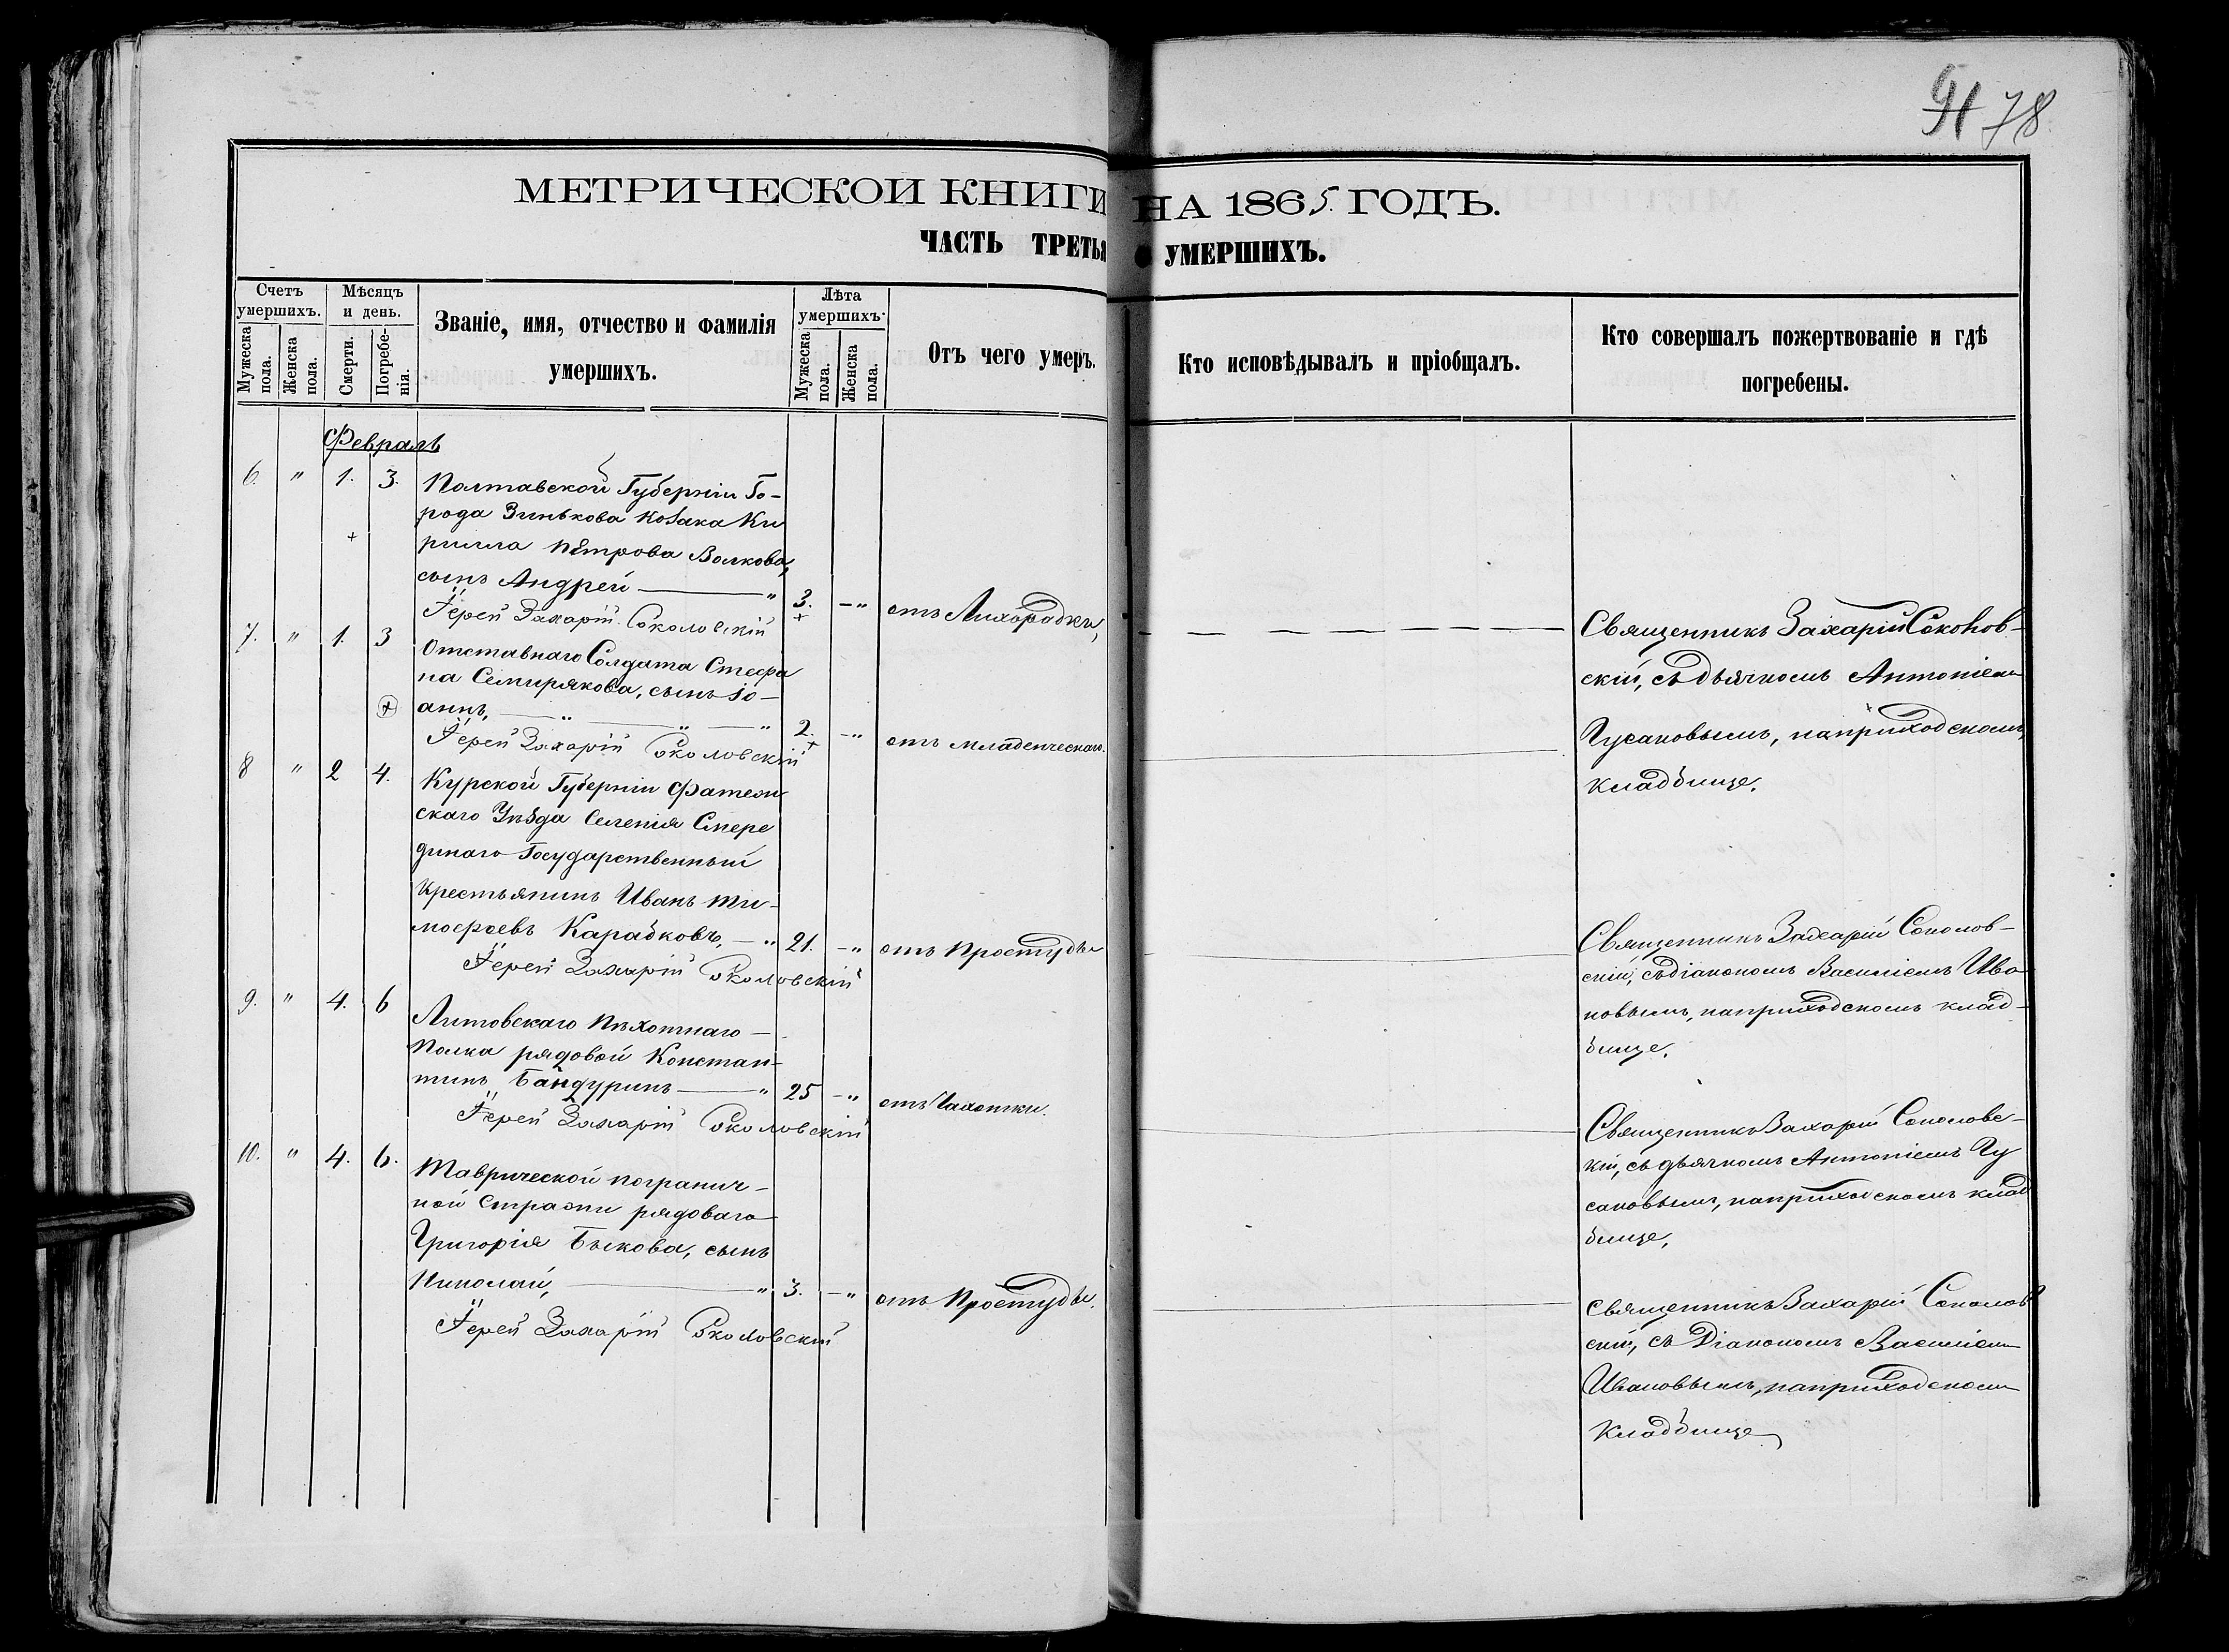 91 78
МЕТРИЧЕСКОЙ КНИГИ НА 1865. ГОДЪ.
ЧАСТЬ ТРЕТЬЯ УМЕРШИХЪ.
Счетъ умершихъ.
Мужеска пола.
Женска пола.
Мѣсяцъ и день.
Смерти.
Погребенія.
Званіе, имя, отчество и фамилія умершихъ.
Лѣта умершихъ.
Мужеска пола.
Женска пола.
Отъ чего умеръ.
Кто исповѣдывалъ и пріобщалъ.
Кто совершалъ пожертвованіе и гдѣ погребены.
Февраль
6. " 1. 3. Полтавской Губерніи Го-
рода Зинькова козака Ки
рилла Петрова Волкова,
сынъ Андрей — " 3. — " отъ Лихорадки,
Іерей Захарій Соколовскій
Священникъ Захарій Соколов-
скій, съ дьячкомъ Антоніемъ
Гусаковымъ, на приходскомъ,
кладбище.
7. " 1. 3 Отставнаго Солдата Стефа
на Семирякова, сынъ Іо-
аннъ, — " — " — " 2. — " отъ младенческаго.
Іерей Захарій Соколовскій
8 " 2 4. Курской Губерніи Фатеж
скаго Уѣзда Селенія Смере
динаго Государственный
Крестьянинъ Иванъ Ти-
мофеевъ Карабковъ, — " 21. — " отъ Простуды
Іерей Захарій Соколовскій
Священникъ Захарій Соколов-
скій, съ діакономъ Василіемъ Ива
новымъ, на приходскомъ клад-
бище.
9. " 4. 6 Литовскаго Пѣхотнаго —
Полка рядовой Констан-
тинъ Бандуринъ — " 25 — " отъ Чахотки.
Іерей Захарій Соколовскій
Священникъ Захарій Соколовс-
кій, съ дьячкомъ Антоніемъ Гу
саковымъ, на приходскомъ клад
бище,
10. " 4. 6. Таврической погранич-
ной Стражи рядоваго
Григорія Быкова, сынъ
Николай, — " 3. — " отъ Простуды.
Іерей Захарій Соколовскій
Священникъ Захарій Соколов
скій, съ Діакономъ Василіемъ
Ивановымъ, на приходскомъ
Кладбище